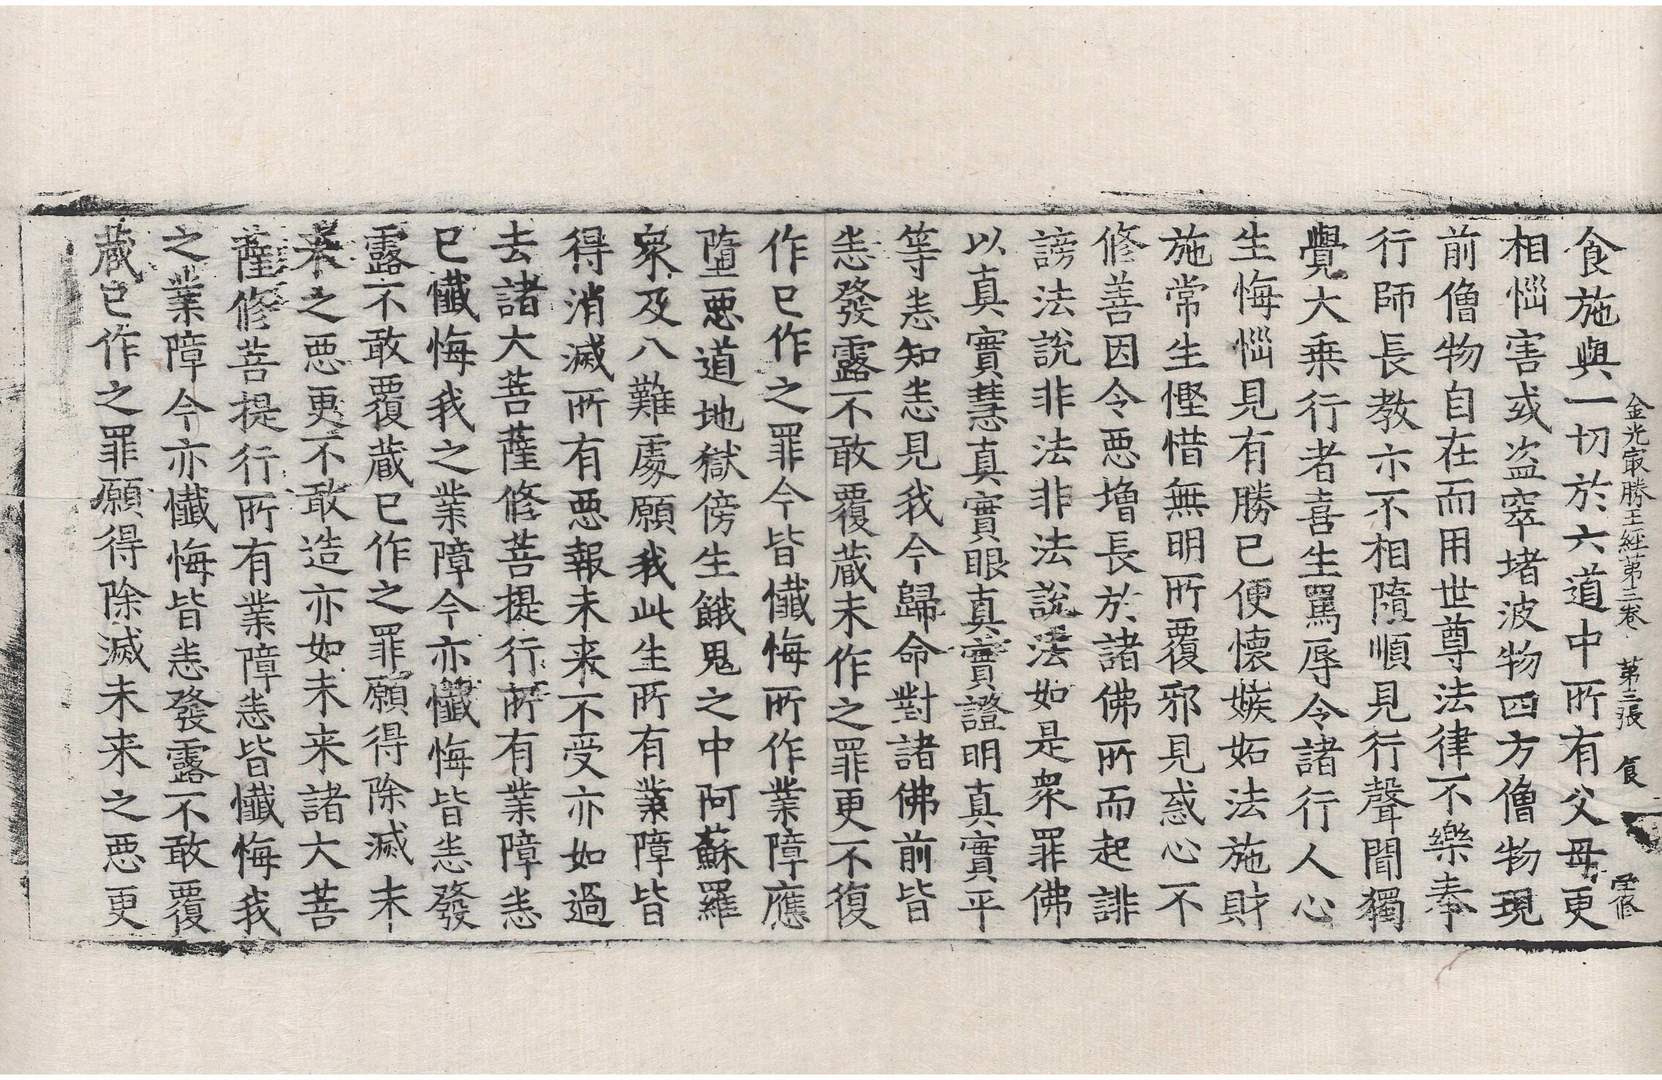 金光㝡勝王經第三卷 第三張 食 雲修
食施與一切於六道中所有父母更
相惱害或盜窣堵波物四方僧物現
前僧物自在而用世尊法律不樂奉
行師長教亦不相隨順見行聲聞獨
覺大乗行者喜生罵辱令諸行人心
生悔惱見有勝已便懷嫉妬法施財
施常生慳惜無明所覆邪見惑心不
修善因令惡增長於諸佛所而起誹
謗法說非法非法說法如是衆罪佛
以真實慧真實眼真實證明真實平
等悉知悉見我今歸命對諸佛前皆
悉發露不敢覆藏未作之罪更不復
作已作之罪今皆懺悔所作業障應
墮惡道地獄傍生餓鬼之中阿蘇羅
衆及八難處願我此生所有業障皆
得消滅所有惡報未来不受亦如過
去諸大菩薩修菩提行所有業障悉
已懺悔我之業障今亦懺悔皆悉發
露不敢覆藏已作之罪願得除滅未
来之惡更不敢造亦如未来諸大菩
薩修菩提行所有業障悉皆懺悔我
之業障今亦懺悔皆悉發露不敢覆
藏已作之罪願得除滅未来之惡更